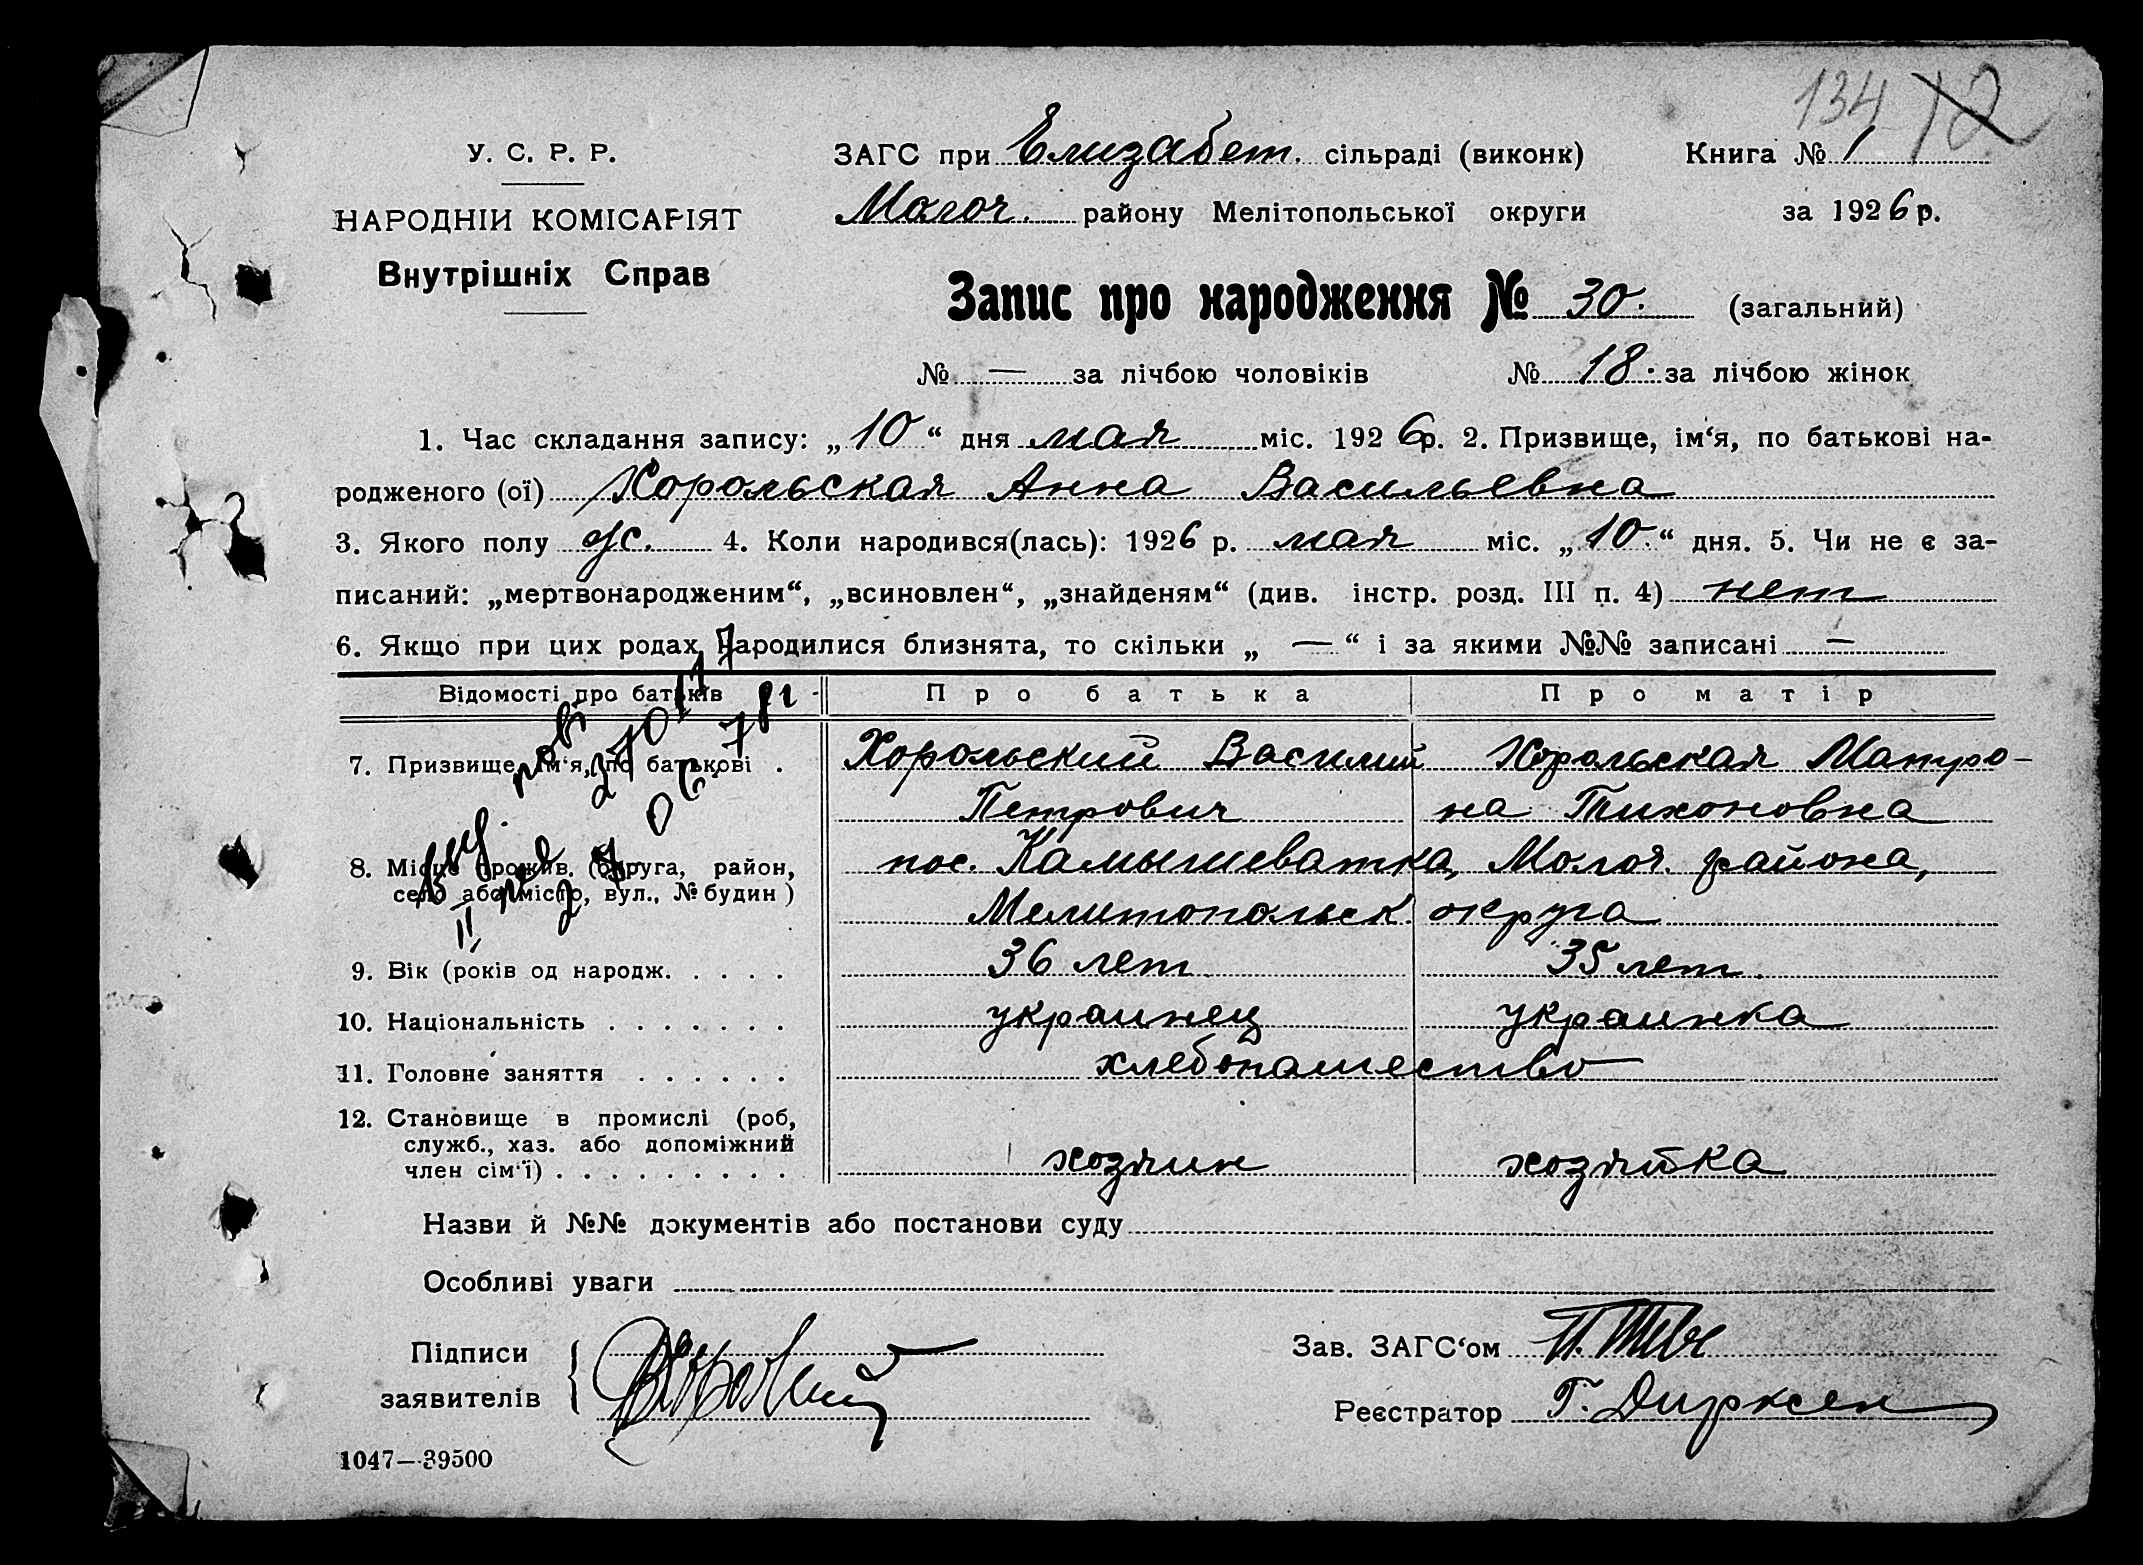 134 12
У. С. Р. Р.
ЗАГС при Елизабет. сільраді (виконк)
Книга № 1
НАРОДНІЙ КОМІСАРІЯТ
Молоч. району Мелітопольської округи
за 1926 р.
Внутрішніх Справ
Запис про народження № 30. (загальний)
№ — за лічбою чоловіків № 18. за лічбою жінок
1. Час складання запису: „10“ дня мая міс. 1926р. 2. Призвище, ім‘я, по батькові на-
родженого (ої) Хорольская Анна Васильевна
3. Якого полу ж. 4. Коли народився(лась): 1926 р. мая міс. „10.“ дня. 5. Чи не є за-
писаний: „мертвонародженим“, „всиновлен“, „знайденям“ (див. інстр. розд. III п. 4) нет
6. Якщо при цих родах народилися близнята, то скільки „ — “ і за якими №№ записані —
Відомості про батьків Про батька Про матір
7. Призвище, ім‘я, по батькові . Хорольский Василий Хорольская Матро-
Петрович на Тихоновна
8. Місце прожив. (округа, район, пос. Камышеватка, Молоч. района,
село або місто, вул., № будин ) Мелитопольск. округа
9. Вік (років од народж. . . . . 36 лет 35 лет.
10. Національність . . . . . . . украинец украинка
11. Головне заняття . . . . . . хлебопашество
12. Становище в промислі (роб,
служб., хаз. або допоміжний
член сім‘ї) . . . . . . . . . хозяин хозяйка
Назви й №№ документів або постанови суду
Особливі уваги
Підписи
заявителів
Зав. ЗАГС‘ом
Реєстратор Г. Дирксен
1047—39500